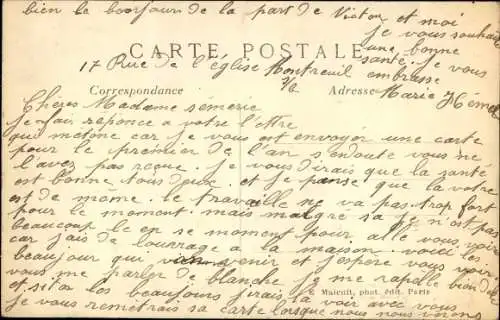 bien le bonjour de la part de Victor et moi
je vous souhaite
une bonne
santé. je vous
embrasse
CARTE POSTALE
17 Rue de l'église Montreuil
Correspondance
Adresse
Marie
Chères Madame sémerie
je fais réponce a votre l'ettre
qui m'etone car je vous est envoyér une carte
pour le premier de l'an s'endoute vous ne
l'avez pas reçue. je vous dirais que la santé
est bonne tous deux. et je panse que la votre
est de même. le travaille ne va pas trop fort
pour le moment. mais malgré sa je n'est pas
beaucoup le en se moment pour allé vous voir
car jais de l'ouvrage a la maison. voici les
beaujour qui venir et j'espère vous voir
vous me parler de blanche je me rapelle bien de
et si ta les beaujours j'irais la voir avec vous
je vous remetrais sa carte lorsque nous nous verons
E. Malcuit, phot. édit. Paris